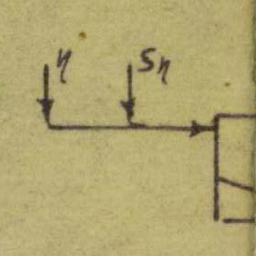 η sη